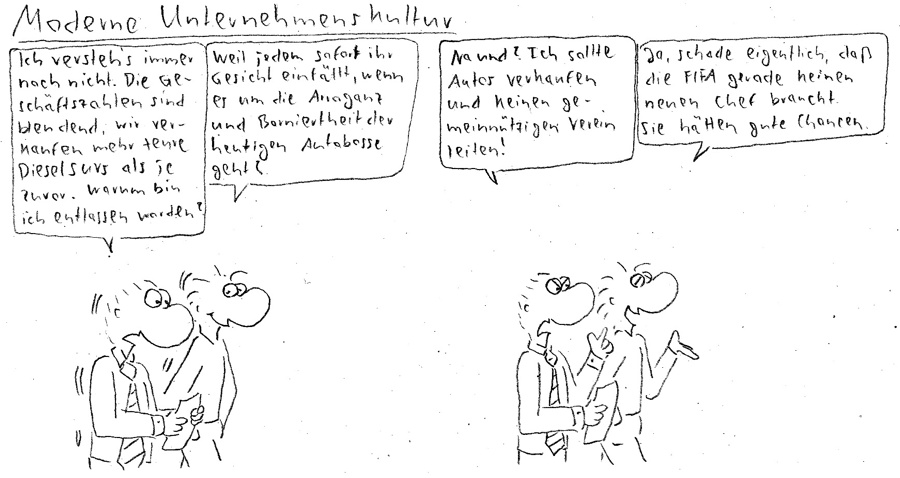 Moderne Unternehmenskultur
Ich versteh's immer
noch nicht. Die Ge-
schäftszahlen sind
blendend, wir ver-
kaufen mehr teure
Diesel SUVs als je
zuvor. Warum bin
ich entlassen worden?
Weil jedem sofort ihr
Gesicht einfällt, wenn
es um die Arroganz
und Borniertheit der
heutigen Autobosse
geht?
Na und? Ich sollte
Autos verkaufen
und keinen ge-
meinnützigen Verein
leiten!
Ja, schade eigentlich, daß
die FIFA gerade keinen
neuen Chef braucht.
Sie hätten gute Chancen.